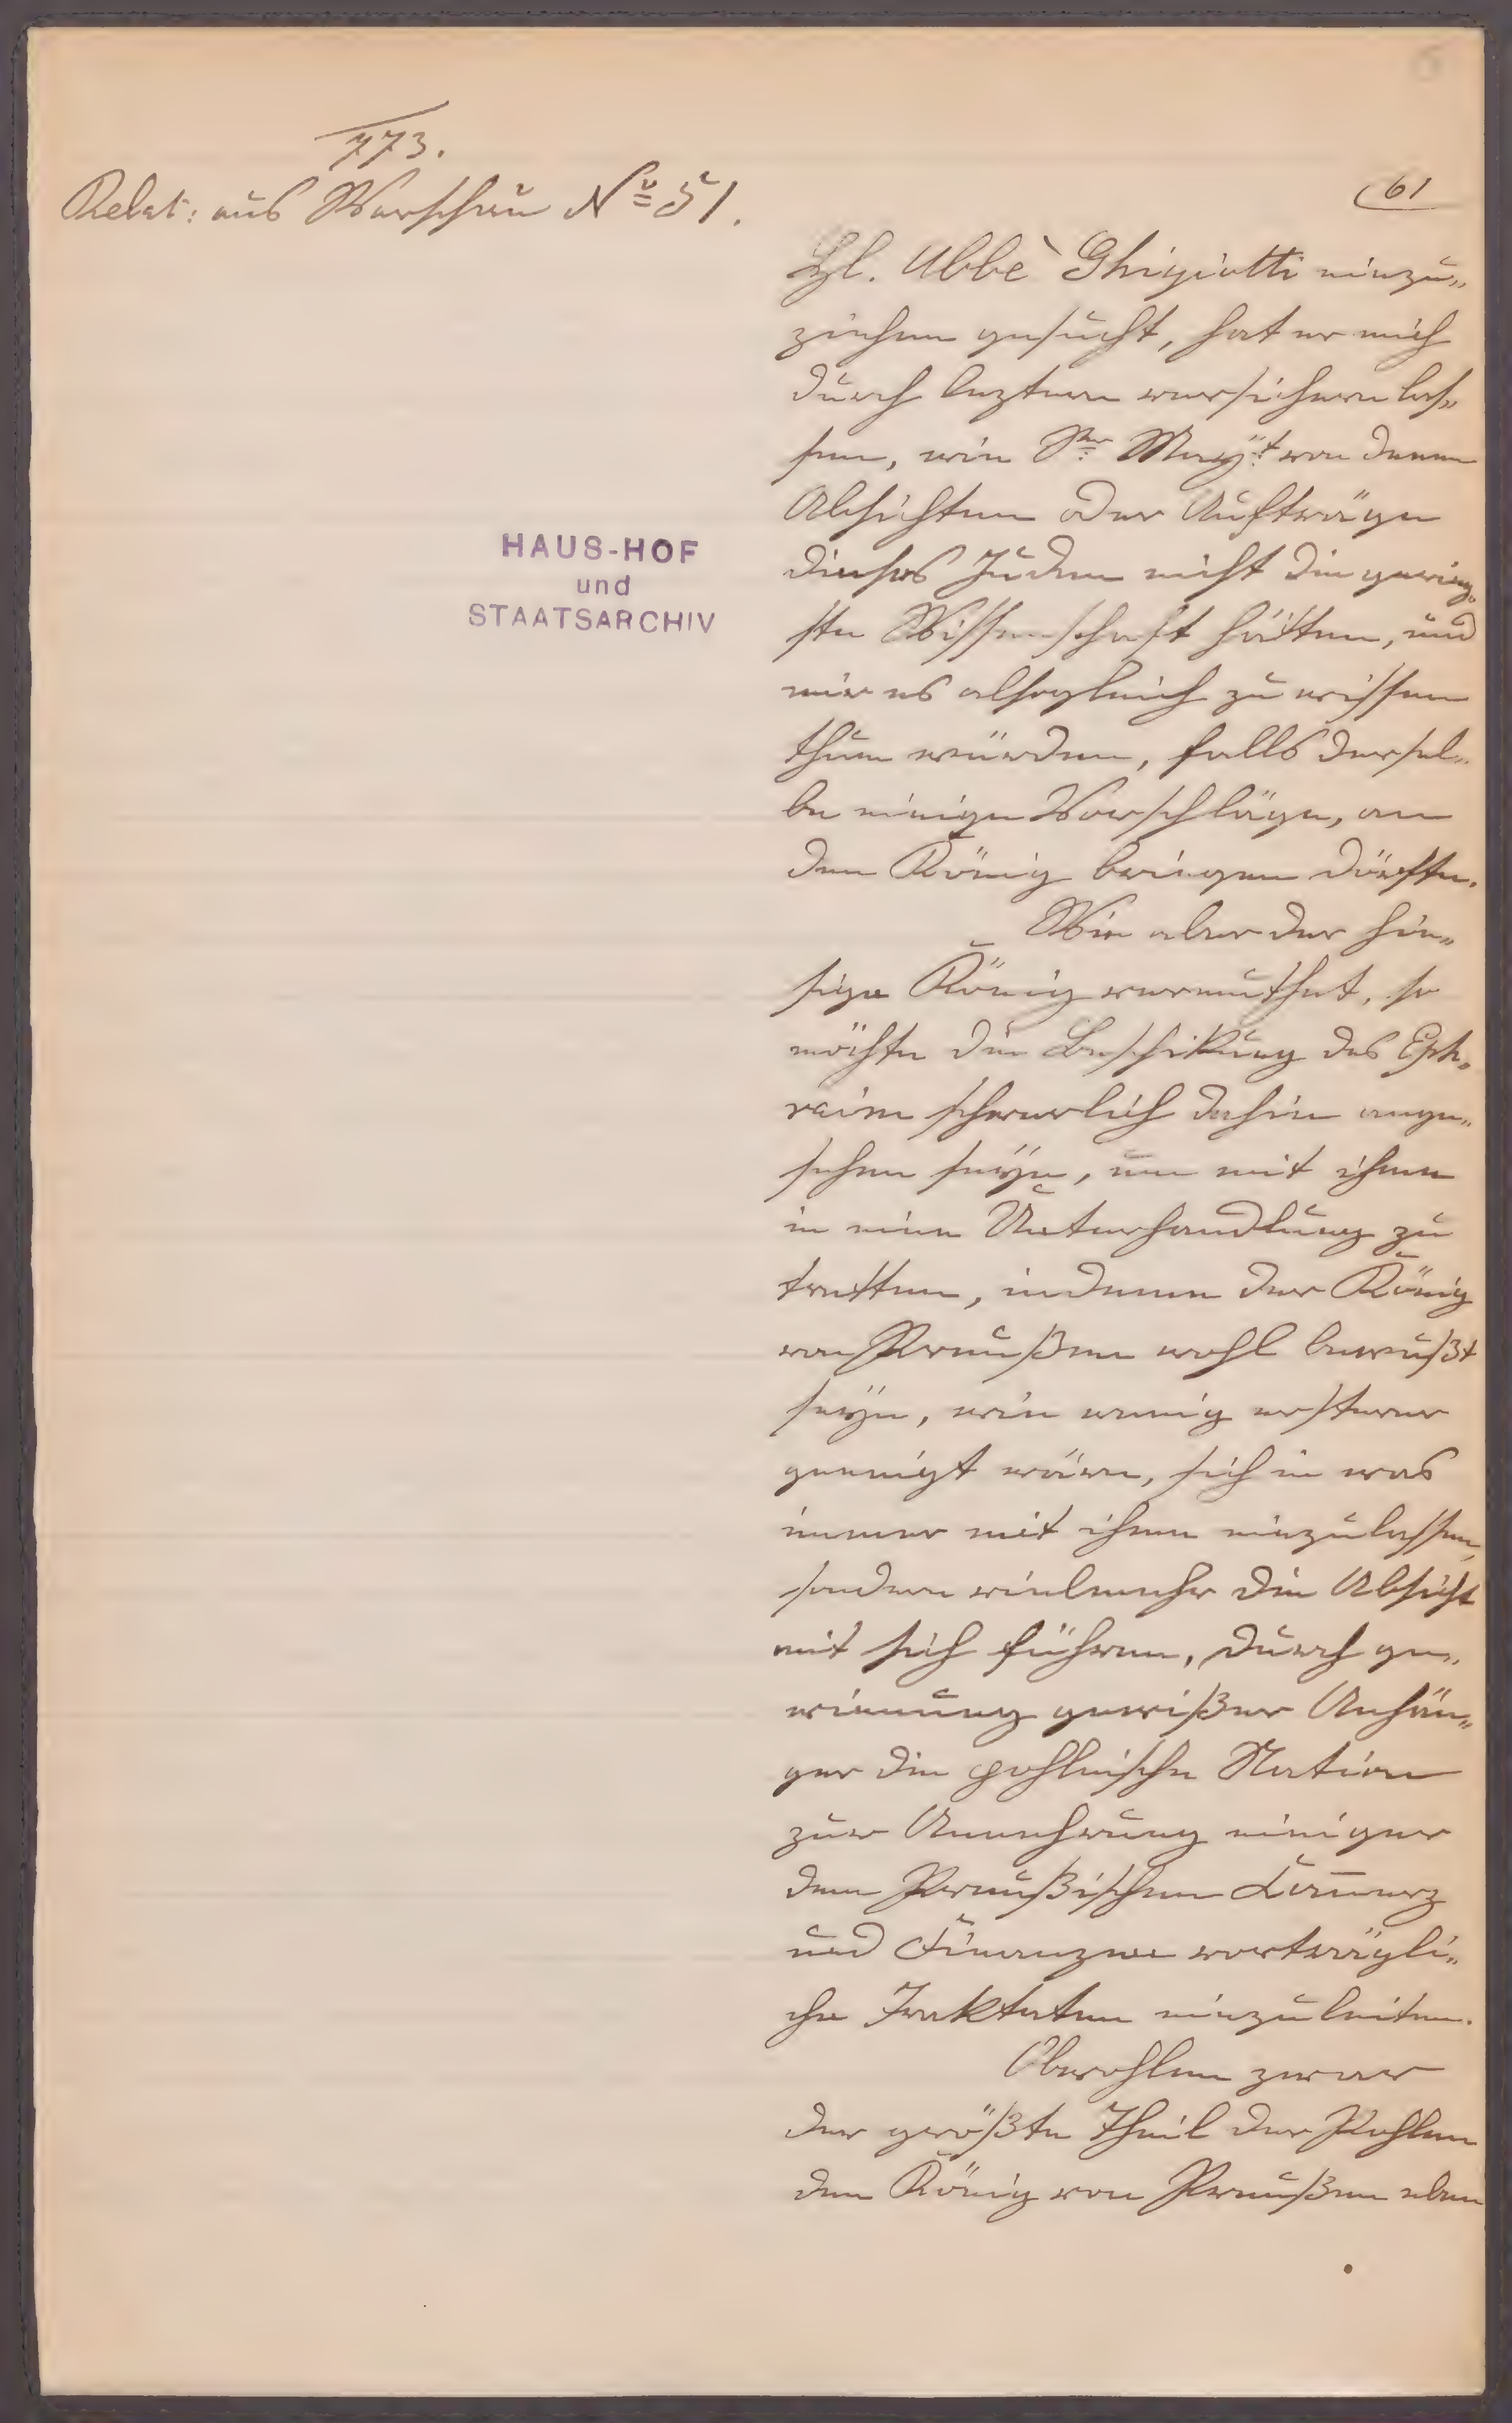 773.
Relat: aus Warschau No 51.
61
HAUS-HOF
und
STAATSARCHIV
Kgl. Abbè Ghigiotti einzu„
ziehen gesucht, hat er mich
durch leztern versichern las„
sen, wie Sr Mayt von denen
Absichten oder Aufträgen
dieses Juden nicht die gering„
ste Wissenschaft hätten, und
mir es alsogleich zu wissen
thun würden, falls dersel„
be einige Vorschläge, an
den König bringen dörfte.
Wie aber der hie„
sige König vermuthet, so
möchte die Beschikung des Eph„
raim schwerlich dahin ange„
sehen seÿn, um mit ihme
in eine Unterhandlung zu
tretten, indeme der König
von Preußen wohl bewußt
seÿn, wie wenig ersterer
geneigt wäre, sich in was
immer mit ihme einzulassen,
sondern vielmehr die Absicht
mit sich führen, durch ge„
winnung gewißer Anhän„
ger die pohlnische Nation
zur Annehmung einiger
dem Preußischen Commerz
und Finanzen vorträgli„
che Traktaten einzuleiten.
Obwohlen zwar
der größte Theil der Pohlen
den König von Preußen eben